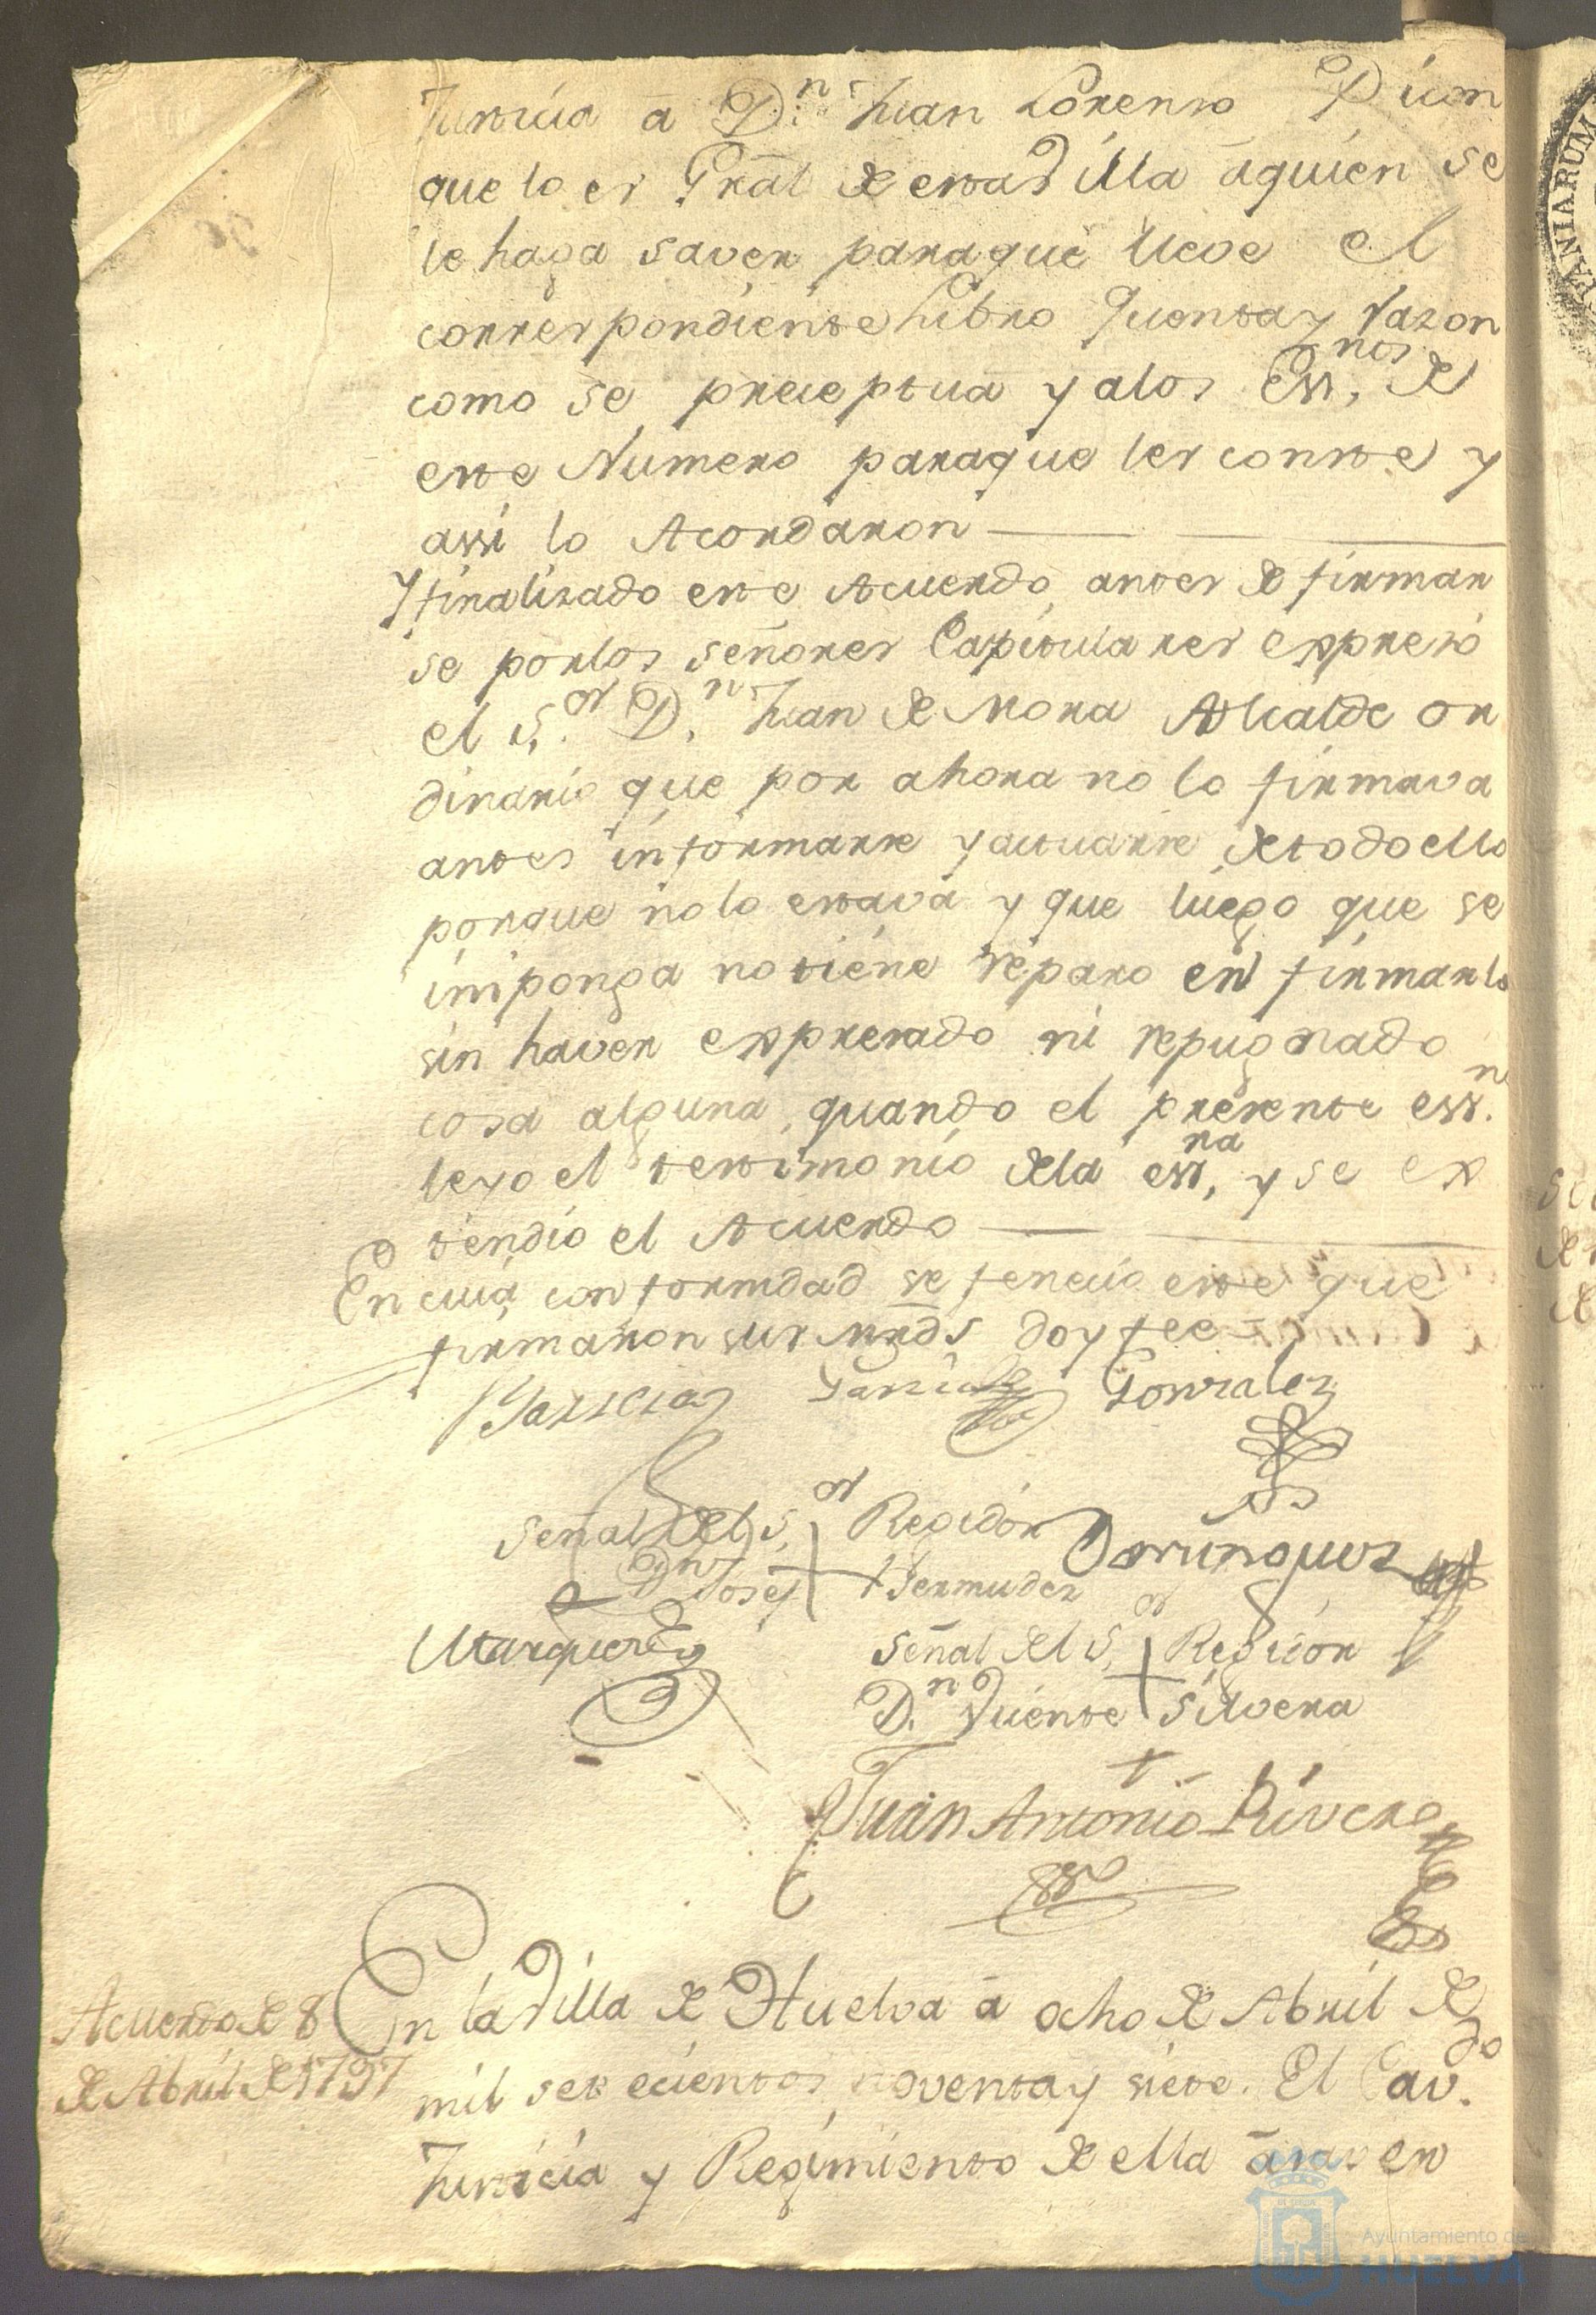 Justicia a D.n Juan Lorenzo Picon
que lo es Gral de esta Villa a quien se
le haga saver para que lleve el
correspondiente Libro Quenta y razon
como se preceptua y a los Ess.nos de
este Numero para que les conste y
assi lo Acordaron
Y finalizado este Acuerdo, antes de firmar
se por los señores Capitulares expresó
el S.or D.n Juan de Mora Alcalde or
dinario que por ahora no lo firmava
antes informarse y actuarse de todo ello
porque no lo estava y que luego que se
imponga no tiene reparo en firmarlo
sin haver expresado ni repugnado
cosa alguna, quando el presente ess.n
leyo el testimonio de la ess.na, y se ex
tendio el Acuerdo
En cuia conformdad se fenecio este que
firmaron sus mrds doy fee
Garicia Gonzalez
Señal del S.or Regidor Dominguez
D.n Josef Bermudez
Marquez
Señal del S.or Regidor
D.n Vicente Silvera
Juan Antonio Rivera
Acuerdo de 8
de Abril de 1797
En la Villa de Huelva a ocho de Abril de
mil setecientos noventa y siete. El Cav.do
Justicia y Regimiento de ella asaver
Ayuntamiento de
HUELVA